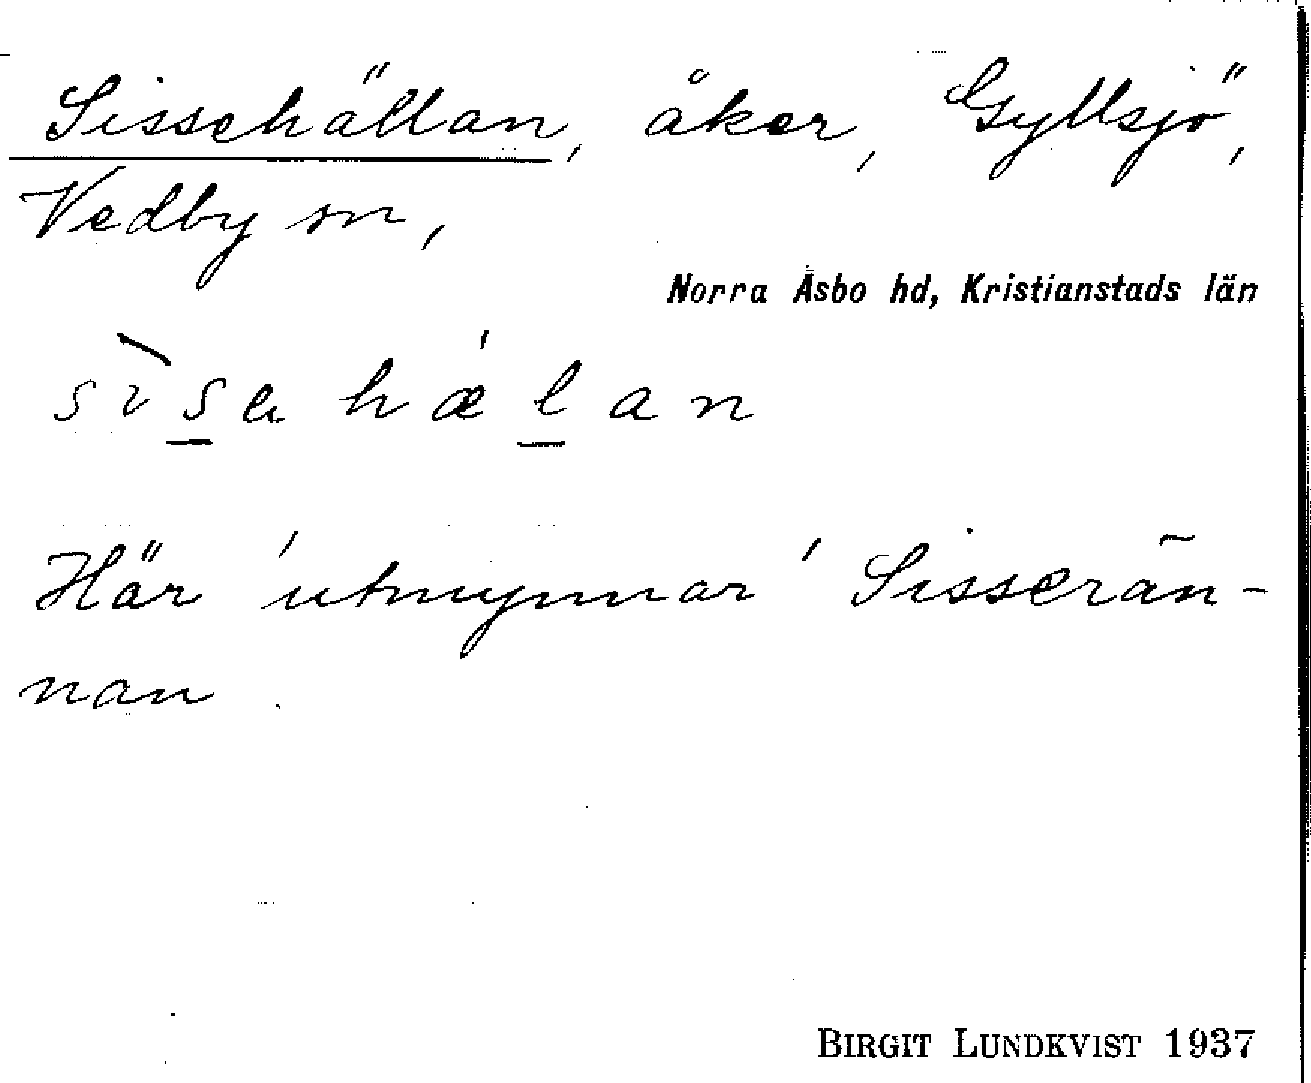 Sissehällan, åker, Gyllsjö,
Vedby sn,
Norra Åsbo hd, Kristianstads län
sìsa hǽlan
Här 'utmynnar' Sisserän-
nan.
BIRGIT LUNDKVIST 1937